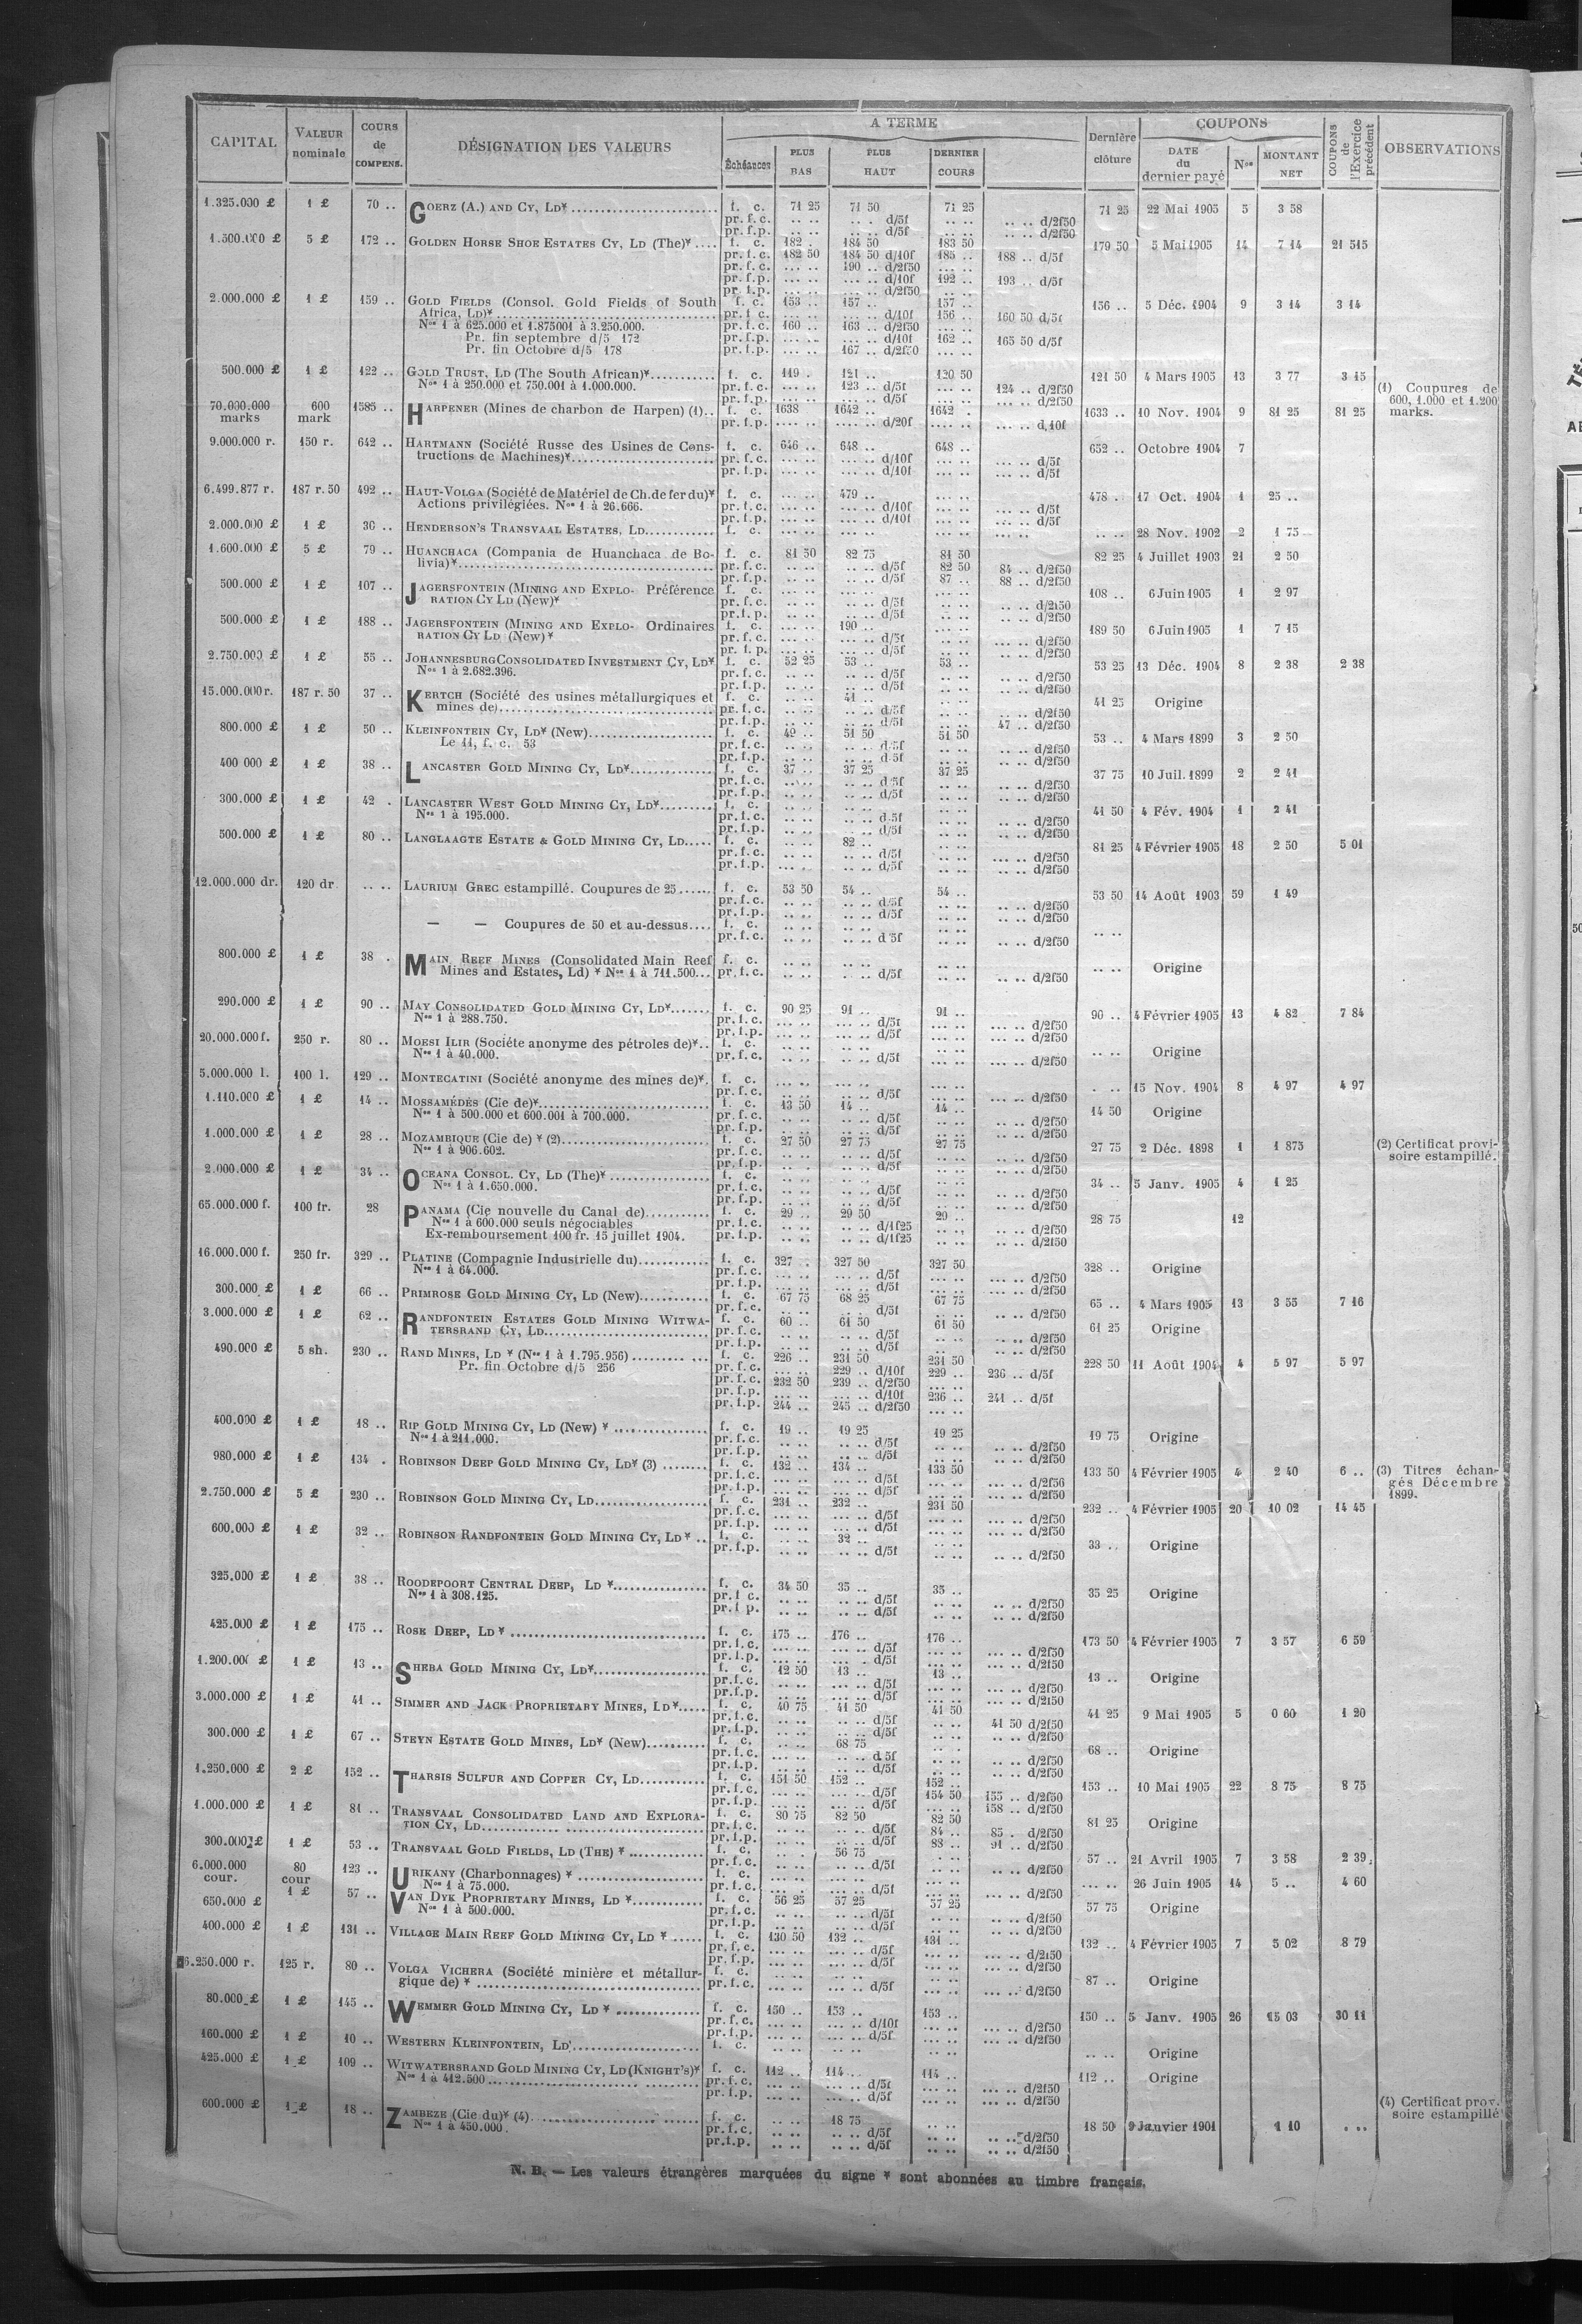 CAPITAL | VALEUR nominale | COURS de COMPENS. | DÉSIGNATION DES VALEURS | A TERME | Dernière clôture | COUPONS | COUPONS de l'Exercice précédent | OBSERVATIONS
Échéances | PLUS BAS | PLUS HAUT | DERNIER COURS | DATE du dernier payé | Nos | MONTANT NET
1.325.000 £ | 1 £ | 70 .. | GOERZ (A.) AND CY, LD* | f. c. | 71 25 | 71 50 | 71 25 | 71 25 | 22 Mai 1905 | 5 | 3 58
pr. f. c. | .. .. | .. . d/5f | .. .. | .. .. d/2f50
pr. f. p. | .. .. | .. .. d/5f | .. .. | .. .. d/2f50
1.500.000 £ | 5 £ | 172 .. | GOLDEN HORSE SHOE ESTATES CY, LD (The)* | f. c. | 182 . | 184 50 | 183 50 | 179 50 | 5 Mai 1905 | 14 | 7 14 | 21 515
pr. f. c. | 182 50 | 184 50 d/10f | 185 .. | 188 .. d/5f
pr. f. c. | ... .. | 190 .. d/2f50 | ... ..
pr. f. p. | ... .. | ... .. d/10f | 192 .. | 193 .. d/5f
pr. f. p. | ... .. | ... .. d/2f50 | .. ..
2.000.000 £ | 1 £ | 159 .. | GOLD FIELDS (Consol. Gold Fields of South | f. c. | 153 .. | 157 .. | 157 .. | 156 .. | 5 Déc. 1904 | 9 | 3 14 | 3 14
Africa, LD)* | pr. f. c. | ... .. | ... .. d/10f | 156 .. | 160 50 d/5f
Nos 1 à 625.000 et 1.875001 à 3.250.000. | pr. f. c. | 160 .. | 163 .. d/2f50 | ... ..
Pr. fin septembre d/5 172 | pr. f. p. | ... .. | ... .. d/10f | 162 .. | 165 50 d/5f
Pr. fin Octobre d/5 178 | pr. f. p. | ... .. | 167 .. d/2f50 | ... ..
500.000 £ | 1 £ | 122 .. | GOLD TRUST, LD (The South African)* | f. c. | 119 . | 121 .. | 120 50 | 121 50 | 4 Mars 1905 | 13 | 3 77 | 3 15
Nos 1 à 250.000 et 750.001 à 1.000.000. | pr. f. c. | ... .. | 123 .. d/5f | ... .. | 124 .. d/2f50
pr. f. p. | ... .. | ... .. d/5f | ... .. | ... .. d/2f50
(1) Coupures de 600, 1.000 et 1.200 marks.
70.000.000 marks | 600 mark | 1585 .. | HARPENER (Mines de charbon de Harpen) (1) | f. c. | 1638 | 1642 .. | 1642 . | 1633 .. | 10 Nov. 1904 | 9 | 81 25 | 81 25
pr. f. p. | .... .. | .... .. d/20f | .... .. | ... .. d/10f
9.000.000 r. | 150 r. | 642 .. | HARTMANN (Société Russe des Usines de Cons- | f. c. | 646 .. | 648 .. | 648 .. | 652 .. | Octobre 1904 | 7
tructions de Machines)* | pr. f. c. | ... .. | ... .. d/10f | ... .. | ... .. d/5f
pr. f. p. | ... .. | ... .. d/10f | ... .. | ... .. d/5f
6.499.877 r. | 187 r. 50 | 492 .. | HAUT-VOLGA (Société de Matériel de Ch. de fer du)* | f. c. | ... .. | 479 .. | ... .. | 478 . | 17 Oct. 1904 | 1 | 25 ..
Actions privilégiées. Nos 1 à 26.666. | pr. f. c. | ... .. | ... .. d/10f | ... .. | ... .. d/5f
pr. f. p. | ... .. | ... .. d/10f | ... .. | ... .. d/5f
2.000.000 £ | 1 £ | 36 .. | HENDERSON'S TRANSVAAL ESTATES, LD | f. c. | ... .. | ... .. | ... .. | .. .. | 28 Nov. 1902 | 2 | 1 75
1.600.000 £ | 5 £ | 79 .. | HUANCHACA (Compania de Huanchaca de Bo- | f. c. | 81 50 | 82 75 | 81 50 | 82 25 | 4 Juillet 1903 | 21 | 2 50
livia)* | pr. f. c. | .. .. | .. .. d/5f | 82 50 | 84 .. d/2f50
pr. f. p. | .. .. | .. .. d/5f | 87 .. | 88 .. d/2f50
500.000 £ | 1 £ | 107 .. | JAGERSFONTEIN (MINING AND EXPLO- Préférence | f. c. | ... .. | ... .. | ... .. | 108 .. | 6 Juin 1905 | 1 | 2 97
RATION CY LD (New)* | pr. f. c. | .. .. | .. .. d/5f | .. .. | .. .. d/2f50
pr. f. p. | .. .. | .. .. d/5f | .. .. | .. .. d/2f50
500.000 £ | 1 £ | 188 .. | JAGERSFONTEIN (MINING AND EXPLO- Ordinaires | f. c. | ... .. | 190 .. | ... .. | 189 50 | 6 Juin 1905 | 1 | 7 15
RATION CY LD (New)* | pr. f. c. | ... .. | ... .. d/5f | ... .. | ... .. d/2f50
pr. f. p. | ... .. | ... .. d/5f | ... .. | ... .. d/2f50
2.750.000 £ | 1 £ | 55 .. | JOHANNESBURG CONSOLIDATED INVESTMENT CY, LD* | f. c. | 52 25 | 53 .. | 53 .. | 53 25 | 13 Déc. 1904 | 8 | 2 38 | 2 38
Nos 1 à 2.682.396. | pr. f. c. | .. .. | .. .. d/5f | .. .. | .. .. d/2f50
pr. f. p. | .. .. | .. .. d/5f | .. .. | .. .. d/2f50
15.000.000 r. | 187 r. 50 | 37 .. | KERTCH (Société des usines métallurgiques et | f. c. | .. .. | 41 .. | .. .. | 41 25 | Origine
mines de) | pr. f. c. | .. .. | .. .. d/5f | .. .. | .. .. d/2f50
pr. f. p. | .. .. | .. .. d/5f | .. .. | 47 .. d/2f50
800.000 £ | 1 £ | 50 .. | KLEINFONTEIN CY, LD* (New) | f. c. | 49 .. | 51 50 | 51 50 | 53 .. | 4 Mars 1899 | 3 | 2 50
Le 11, f. c. 53 | pr. f. c. | .. .. | .. .. d/5f | .. .. | .. .. d/2f50
pr. f. p. | .. .. | .. .. d/5f | .. .. | .. .. d/2f50
400 000 £ | 1 £ | 38 .. | LANCASTER GOLD MINING CY, LD* | f. c. | 37 .. | 37 25 | 37 25 | 37 75 | 10 Juil. 1899 | 2 | 2 41
pr. f. c. | .. .. | .. .. d/5f | .. .. | .. .. d/2f50
pr. f. p. | .. .. | .. .. d/5f | .. .. | .. .. d/2f50
300.000 £ | 1 £ | 42 . | LANCASTER WEST GOLD MINING CY, LD* | f. c. | .. .. | .. .. | .. .. | 41 50 | 4 Fév. 1904 | 1 | 2 41
Nos 1 à 195.000. | pr. f. c. | .. .. | .. .. d/5f | .. .. | .. .. d/2f50
pr. f. p. | .. .. | .. .. d/5f | .. .. | .. .. d/2f50
500.000 £ | 1 £ | 80 .. | LANGLAAGTE ESTATE & GOLD MINING CY, LD | f. c. | .. .. | 82 .. | .. .. | 81 25 | 4 Février 1905 | 18 | 2 50 | 5 01
pr. f. c. | .. .. | .. .. d/5f | .. .. | ... .. d/2f50
pr. f. p. | .. .. | .. .. d/5f | .. .. | ... .. d/2f50
12.000.000 dr. | 120 dr. | .. .. | LAURIUM GREC estampillé. Coupures de 25 | f. c. | 53 50 | 54 .. | 54 .. | 53 50 | 14 Août 1903 | 59 | 1 49
pr. f. c. | .. .. | .. .. d/5f | .. .. | .. .. d/2f50
pr. f. p. | .. .. | .. .. d/5f | .. .. | .. .. d/2f50
— — Coupures de 50 et au-dessus | f. c. | .. .. | .. .. | .. .. | .. ..
pr. f. c. | .. .. | .. .. d/5f | .. .. | .. .. d/2f50
800.000 £ | 1 £ | 38 . | MAIN REEF MINES (Consolidated Main Reef | f. c. | .. .. | .. .. | .. .. | .. .. | Origine
Mines and Estates, Ld) * Nos 1 à 711.500 | pr. f. c. | .. .. | .. .. d/5f | .. .. | .. .. d/2f50
290.000 £ | 1 £ | 90 .. | MAY CONSOLIDATED GOLD MINING CY, LD* | f. c. | 90 25 | 91 .. | 91 .. | 90 .. | 4 Février 1905 | 13 | 4 82 | 7 84
Nos 1 à 288.750. | pr. f. c. | ... .. | ... .. d/5f | ... .. | ... .. d/2f50
pr. f. p. | ... .. | ... .. d/5f | ... .. | ... .. d/2f50
20.000.000 f. | 250 r. | 80 .. | MOESI ILIR (Sociéte anonyme des pétroles de)* | f. c. | .. .. | .. .. | .. .. | .. .. | Origine
Nos 1 à 40.000. | pr. f. c. | ... .. | .. .. d/5f | ... .. | ... .. d/2f50
5.000.000 l. | 100 l. | 129 .. | MONTECATINI (Société anonyme des mines de)* | f. c. | ... .. | ... .. | ... .. | . .. | 15 Nov. 1904 | 8 | 4 97 | 4 97
pr. f. c. | ... .. | ... .. d/5f | ... .. | ... .. d/2f50
1.110.000 £ | 1 £ | 14 .. | MOSSAMÉDÈS (Cie de)* | f. c. | 13 50 | 14 .. | 14 .. | 14 50 | Origine
Nos 1 à 500.000 et 600.001 à 700.000. | pr. f. c. | .. .. | .. .. d/5f | .. .. | .. .. d/2f50
pr. f. p. | .. .. | .. .. d/5f | .. .. | .. .. d/2f50
1.000.000 £ | 1 £ | 28 .. | MOZAMBIQUE (Cie de) * (2) | f. c. | 27 50 | 27 75 | 27 75 | 27 75 | 2 Déc. 1898 | 1 | 1 875 | (2) Certificat provi-
Nos 1 à 906.602. | pr. f. c. | .. .. | .. .. d/5f | .. .. | .. .. d/2f50 | soire estampillé.
pr. f. p. | .. .. | .. .. d/5f | .. .. | .. .. d/2f50
2.000.000 £ | 1 £ | 34 .. | OCEANA CONSOL. CY, LD (The)* | f. c. | .. .. | .. .. | .. .. | 34 .. | 5 Janv. 1905 | 4 | 1 25
Nos 1 à 1.650.000. | pr. f. c. | .. .. | .. .. d/5f | .. .. | .. .. d/2f50
pr. f. p. | .. .. | .. .. d/5f | .. .. | .. .. d/2f50
65.000.000 f. | 100 fr. | 28 | PANAMA (Cie nouvelle du Canal de) | f. c. | 29 .. | 29 50 | 29 .. | 28 75 | 12
Nos 1 à 600.000 seuls négociables | pr. f. c. | .. .. | .. .. d/1f25 | .. .. | .. .. d/2f50
Ex-remboursement 100 fr. 15 juillet 1904. | pr. f. p. | .. .. | .. .. d/1f25 | .. .. | .. .. d/2f50
16.000.000 f. | 250 fr. | 329 .. | PLATINE (Compagnie Industrielle du) | f. c. | 327 .. | 327 50 | 327 50 | 328 .. | Origine
Nos 1 à 64.000. | pr. f. c. | ... .. | ... .. d/5f | ... .. | ... .. d/2f50
pr. f. p. | ... .. | ... .. d/5f | ... .. | ... .. d/2f50
300.000 £ | 1 £ | 66 .. | PRIMROSE GOLD MINING CY, LD (New) | f. c. | 67 75 | 68 25 | 67 75 | 65 .. | 4 Mars 1905 | 13 | 3 55 | 7 16
pr. f. c. | .. .. | .. .. d/5f | .. .. | .. .. d/2f50
3.000.000 £ | 1 £ | 62 .. | RANDFONTEIN ESTATES GOLD MINING WITWA- | f. c. | 60 .. | 61 50 | 61 50 | 61 25 | Origine
TERSRAND CY, LD | pr. f. c. | .. .. | .. .. d/5f | .. .. | .. .. d/2f50
pr. f. p. | .. .. | .. .. d/5f | .. .. | .. .. d/2f50
490.000 £ | 5 sh. | 230 .. | RAND MINES, LD * (Nos 1 à 1.795.956) | f. c. | 226 .. | 231 50 | 231 50 | 228 50 | 11 Août 1904 | 4 | 5 97 | 5 97
Pr. fin Octobre d/5 256 | pr. f. c. | ... .. | 229 .. d/10f | 229 .. | 236 .. d/5f
pr. f. c. | 232 50 | 239 .. d/2f50 | ... ..
pr. f. p. | ... .. | ... .. d/10f | 236 .. | 241 .. d/5f
pr. f. p. | 244 .. | 245 .. d/2f50 | ... ..
400.000 £ | 1 £ | 18 .. | RIP GOLD MINING CY, LD (New) * | f. c. | 19 .. | 19 25 | 19 25 | 19 75 | Origine
Nos 1 à 211.000. | pr. f. c. | .. .. | .. .. d/5f | .. .. | .. .. d/2f50
pr. f. p. | .. .. | .. .. d/5f | .. .. | .. .. d/2f50
980.000 £ | 1 £ | 134 . | ROBINSON DEEP GOLD MINING CY, LD* (3) | f. c. | 132 .. | 134 .. | 133 50 | 133 50 | 4 Février 1905 | 4 | 2 40 | 6 .. | (3) Titres échan-
pr. f. c. | ... .. | ... .. d/5f | ... .. | ... .. d/2f50 | gés Décembre
pr. f. p. | ... .. | ... .. d/5f | ... .. | ... .. d/2f50 | 1899.
2.750.000 £ | 5 £ | 230 .. | ROBINSON GOLD MINING CY, LD | f. c. | 231 .. | 232 .. | 231 50 | 232 .. | 4 Février 1905 | 20 | 10 02 | 14 45
pr. f. c. | ... .. | ... .. d/5f | ... .. | ... .. d/2f50
pr. f. p. | ... .. | ... .. d/5f | ... .. | ... .. d/2f50
600.000 £ | 1 £ | 32 .. | ROBINSON RANDFONTEIN GOLD MINING CY, LD * | f. c. | .. .. | 32 .. | .. .. | 33 .. | Origine
pr. f. p. | .. .. | .. .. d/5f | .. .. | .. .. d/2f50
325.000 £ | 1 £ | 38 .. | ROODEPOORT CENTRAL DEEP, LD * | f. c. | 34 50 | 35 .. | 35 .. | 35 25 | Origine
Nos 1 à 308.125. | pr. f. c. | .. .. | .. .. d/5f | .. .. | .. .. d/2f50
pr. f. p. | .. .. | .. .. d/5f | .. .. | .. .. d/2f50
425.000 £ | 1 £ | 175 .. | ROSE DEEP, LD * | f. c. | 175 .. | 176 .. | 176 .. | 173 50 | 4 Février 1905 | 7 | 3 57 | 6 59
pr. f. c. | ... .. | ... .. d/5f | ... .. | ... .. d/2f50
pr. f. p. | ... .. | ... .. d/5f | ... .. | ... .. d/2f50
1.200.000 £ | 1 £ | 13 .. | SHEBA GOLD MINING CY, LD* | f. c. | 12 50 | 13 .. | 13 .. | 13 .. | Origine
pr. f. c. | ... .. | ... .. d/5f | ... .. | ... .. d/2f50
pr. f. p. | ... .. | ... .. d/5f | ... .. | ... .. d/2f50
3.000.000 £ | 1 £ | 41 .. | SIMMER AND JACK PROPRIETARY MINES, LD* | f. c. | 40 75 | 41 50 | 41 50 | 41 25 | 9 Mai 1905 | 5 | 0 60 | 1 20
pr. f. c. | .. .. | .. .. d/5f | .. .. | 41 50 d/2f50
pr. f. p. | .. .. | .. .. d/5f | .. .. | .. .. d/2f50
300.000 £ | 1 £ | 67 .. | STEYN ESTATE GOLD MINES, LD* (New) | f. c. | .. .. | 68 75 | .. .. | 68 .. | Origine
pr. f. c. | .. .. | .. .. d/5f | .. .. | .. .. d/2f50
pr. f. p. | .. .. | .. .. d/5f | .. .. | .. .. d/2f50
1.250.000 £ | 2 £ | 152 .. | THARSIS SULFUR AND COPPER CY, LD | f. c. | 151 50 | 152 .. | 152 .. | 153 .. | 10 Mai 1905 | 22 | 8 75 | 8 75
pr. f. c. | ... .. | ... .. d/5f | 154 50 | 155 .. d/2f50
pr. f. p. | ... .. | ... .. d/5f | ... .. | 158 .. d/2f50
1.000.000 £ | 1 £ | 81 .. | TRANSVAAL CONSOLIDATED LAND AND EXPLORA- | f. c. | 80 75 | 82 50 | 82 50 | 81 25 | Origine
TION CY, LD | pr. f. c. | .. .. | .. .. d/5f | 84 .. | 85 . d/2f50
pr. f. p. | .. .. | .. .. d/5f | 88 .. | 91 .. d/2f50
300.000 £ | 1 £ | 53 .. | TRANSVAAL GOLD FIELDS, LD (THE) * | f. c. | .. .. | 56 75 | .. .. | 57 .. | 21 Avril 1905 | 7 | 3 58 | 2 39
pr. f. c. | .. .. | .. .. d/5f | .. .. | .. .. d/2f50
6.000.000 cour. | 80 cour | 123 .. | URIKANY (Charbonnages) * | f. c. | ... .. | ... .. | ... .. | ... .. | 26 Juin 1905 | 14 | 5 .. | 4 60
Nos 1 à 75.000. | pr. f. c. | ... .. | ... .. d/5f | ... .. | ... .. d/2f50
650.000 £ | 1 £ | 57 .. | VAN DYK PROPRIETARY MINES, LD * | f. c. | 56 25 | 57 25 | 57 25 | 57 75 | Origine
Nos 1 à 500.000. | pr. f. c. | .. .. | .. .. d/5f | .. .. | .. .. d/2f50
pr. f. p. | .. .. | .. .. d/5f | .. .. | .. .. d/2f50
400.000 £ | 1 £ | 131 .. | VILLAGE MAIN REEF GOLD MINING CY, LD * | f. c. | 130 50 | 132 .. | 131 .. | 132 .. | 4 Février 1905 | 7 | 5 02 | 8 79
pr. f. c. | ... .. | ... .. d/5f | ... .. | ... .. d/2f50
pr. f. p. | ... .. | ... .. d/5f | ... .. | ... .. d/2f50
6.250.000 r. | 125 r. | 80 .. | VOLGA VICHERA (Société minière et métallur- | f. c. | .. .. | .. .. | .. .. | 87 .. | Origine
gique de) * | pr. f. c. | ... .. | ... .. d/5f | ... .. | ... .. d/2f50
80.000 £ | 1 £ | 145 .. | WEMMER GOLD MINING CY, LD * | f. c. | 150 .. | 153 .. | 153 .. | 150 .. | 5 Janv. 1905 | 26 | 15 03 | 30 11
pr. f. c. | ... .. | ... .. d/10f | ... .. | ... .. d/2f50
pr. f. p. | ... .. | ... .. d/5f | ... .. | ... .. d/2f50
160.000 £ | 1 £ | 10 .. | WESTERN KLEINFONTEIN, LD | f. c. | .. .. | .. .. | .. .. | .. .. | Origine
425.000 £ | 1 £ | 109 .. | WITWATERSRAND GOLD MINING CY, LD (KNIGHT'S)* | f. c. | 112 .. | 114 .. | 114 .. | 112 .. | Origine
Nos 1 à 412.500 | pr. f. c. | ... .. | ... .. d/5f | ... .. | ... .. d/2f50
pr. f. p. | ... .. | ... .. d/5f | ... .. | ... .. d/2f50
600.000 £ | 1 £ | 18 .. | ZAMBEZE (Cie du)* (4) | f. c. | .. .. | 18 75 | .. .. | 18 50 | 9 Janvier 1901 | 1 10 | . .. | (4) Certificat prov.
Nos 1 à 450.000 | pr. f. c. | .. .. | .. .. d/5f | .. .. | .. .. d/2f50 | soire estampillé
pr. f. p. | .. .. | .. .. d/5f | .. .. | .. .. d/2f50
N. B. — Les valeurs étrangères marquées du signe * sont abonnées au timbre français.